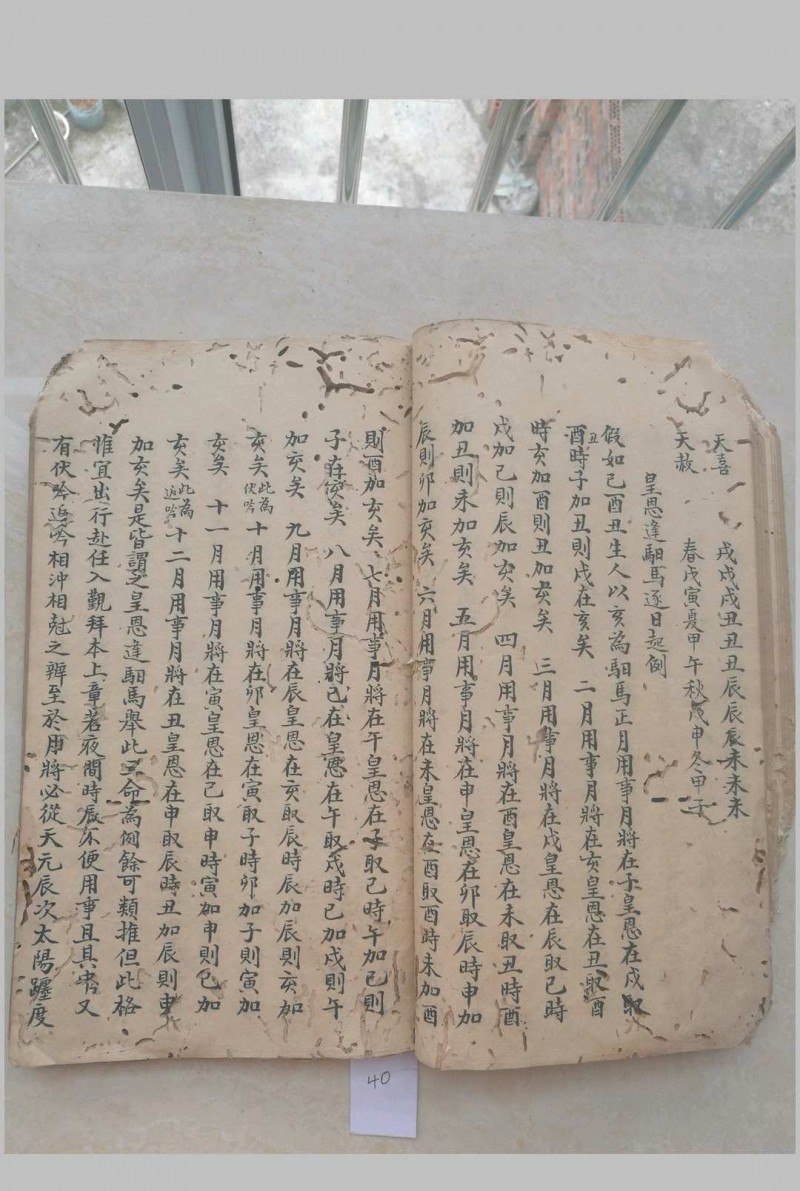 天喜　戌戌戌丑丑丑辰辰辰未未未
天赦　春戊寅夏甲午秋戊申冬甲子
皇恩逢駟馬逐日起例
假如己酉丑生人以亥為駟馬正月用事月將在子皇恩在戌取
丑
酉時子加丑則戌在亥矣　二月用事月將在亥皇恩在丑取酉
時亥加酉則丑加亥矣　三月用事月將在戌皇恩在辰取己時
戌加己則辰加亥矣　四月用事月將在酉皇恩在未取丑時酉
加丑則未加亥矣　五月用事月將在申皇恩在卯取辰時申加
辰則卯加亥矣　六月用事月將在未皇恩在酉取酉時未加酉
則酉加亥矣　七月用事月將在午皇恩在子取己時午加己則
子在亥矣　八月用事月將己在皇恩在午取戌時己加戌則午
加亥矣　九月用事月將在辰皇恩在亥取辰時辰加辰則亥加
亥矣此為伏吟十月用事月將在卯皇恩在寅取子時卯加子則寅加
亥矣　十一月用事月將在寅皇恩在己取申時寅加申則己加
亥矣此為返吟十二月用事月將在丑皇恩在申取辰時丑加辰則申
加亥矣是皆謂之皇恩逢駟馬舉此三命為例餘可類推但此格
惟宜出行赴任入觀拜本上章若夜間時辰不便用事且其中又
有伏吟返吟相沖相尅之辨至於用將必從天元辰次太陽躔度
40